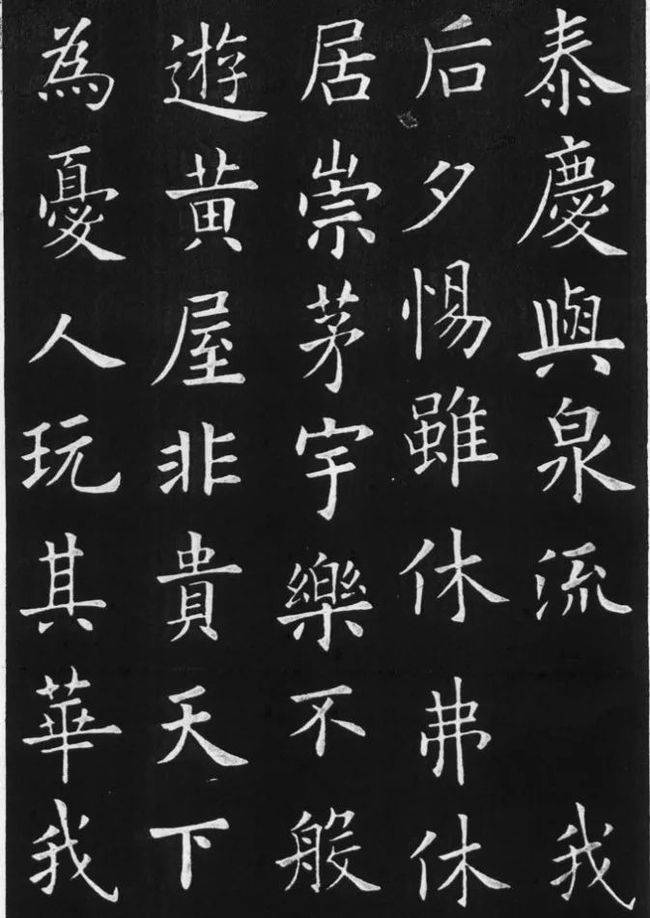 泰慶與泉流 我
后夕惕雖休弗休
居崇茅宇樂不般
遊黃屋非貴天下
為憂人玩其華我